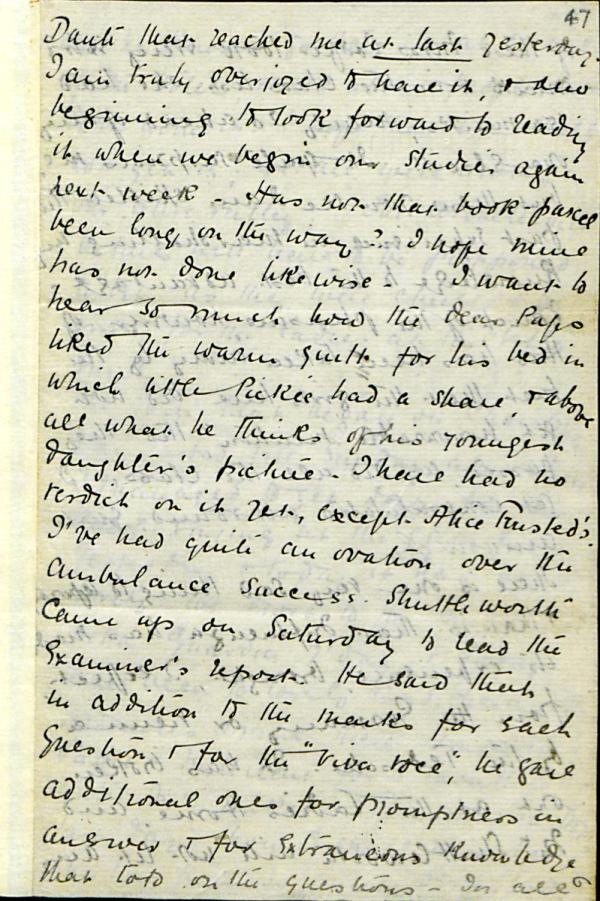 47
Dante that reached me at last yesterday.
I am truly overjoyed to have it, & am
beginning to look forward to reading
it when we begin our studies again
next week - Has not that book-parcel
been long on the way? I hope mine
has not done likewise - I want to
hear so much how the dear Paps
liked the warm quilt for his bed in
which little Pickie had a share, & above
all what he thinks of his youngest
daughter's picture - I have had no
verdict on it yet, except Alice Trusted's.
I've had quite an ovation over the
Ambulance success. Shuttleworth
came up on Saturday to read the
Examiner's report. He said that
in addition to the marks for each
question & for the "viva voce", he gave
additional ones for promptness in
answer & for extraneous knowledge
that told on the questions - In all